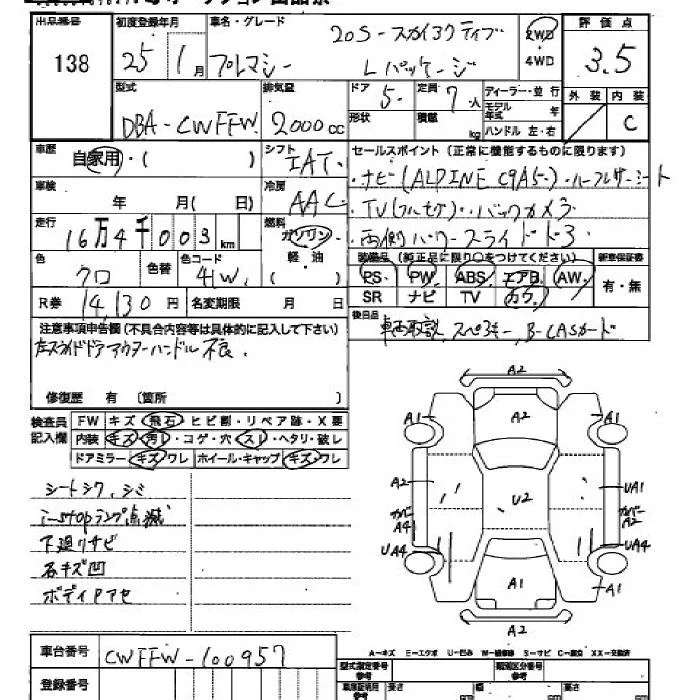 出品番号 初度登録年月 車名・グレード 20S-スカイアクティブ 2WD 評価点
138 25 1月 プレマシー Lパッケージ 4WD 3.5
型式 排気量 ドア 5 定員 7人 ディーラー・並行 外装 内装
DBA-CWFFW 2000cc 形状 積載 kg モデル年式 年 ハンドル 左・右 C
車歴 自家用・( ) シフト IAT セールスポイント(正常に機能するものに限ります)
車検 年 月( 日) 冷房 AAC ・ナビ(ALPINE C9A5)・ハーフレザーシート
・TV(フルセグ)・バックカメラ
走行 16万4千003km 燃料 ガソリン・ ・両側パワースライドドア
色 クロ 色替 色コード 41W 軽油 装備品(純正品に限り○をつけてください) 新車保証書
PS PW ABS エアB AW 有・無
R券 14,130円 名変期限 月 日 SR ナビ TV カワ
注意事項申告欄(不具合内容等は具体的に記入して下さい) 後日品
左スライドドアアウターハンドル不良. 車両取説 スペアキー, B-CASカード
修復歴 有 〔箇所 〕
検査員記入欄 FW キズ・飛石・ヒビ割・リペア跡・X要
内装 キズ・汚れ・コゲ・穴・スレ・ヘタリ・破レ
ドアミラー キズ・ワレ ホイール・キャップ キズ・ワレ
シートシワ, シミ
i-stopランプ点滅
下廻りサビ
石キズ凹
ボディPアセ
A2
A1 A2 A1
A2 UA1
U2
カバーA4 カバーA2
UA4 UA4
A1 A1
A2
A-キズ E-エクボ U-凹み W-補修跡 S-サビ C-腐食 XX-交換済
車台番号 CWFFW-100957 型式指定番号 参考 類別区分番号 参考
登録番号 長さ 幅 高さ